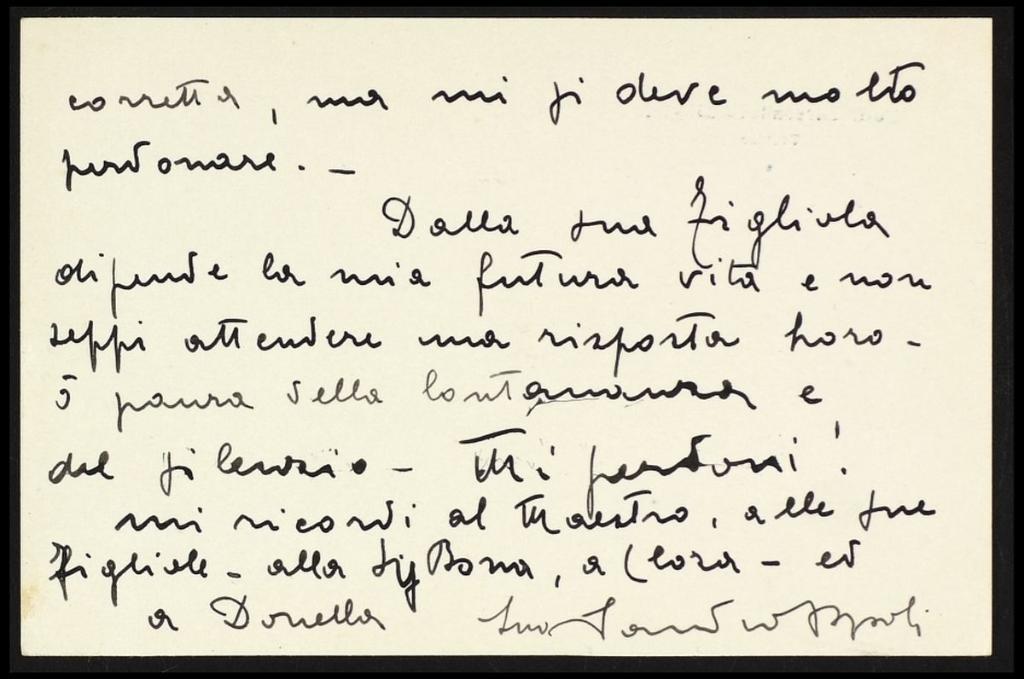 corretta, ma mi si deve molto
perdonare. -
Dalla sua figliola
dipende la mia futura vita e non
seppi attendere una risposta
ò paura della lontananza e
del silenzio - Mi perdoni!
mi ricordi al Maestro, alle sue
figliole - alla Sig Bona, a Clara - ed
a Donella Suo Sandro